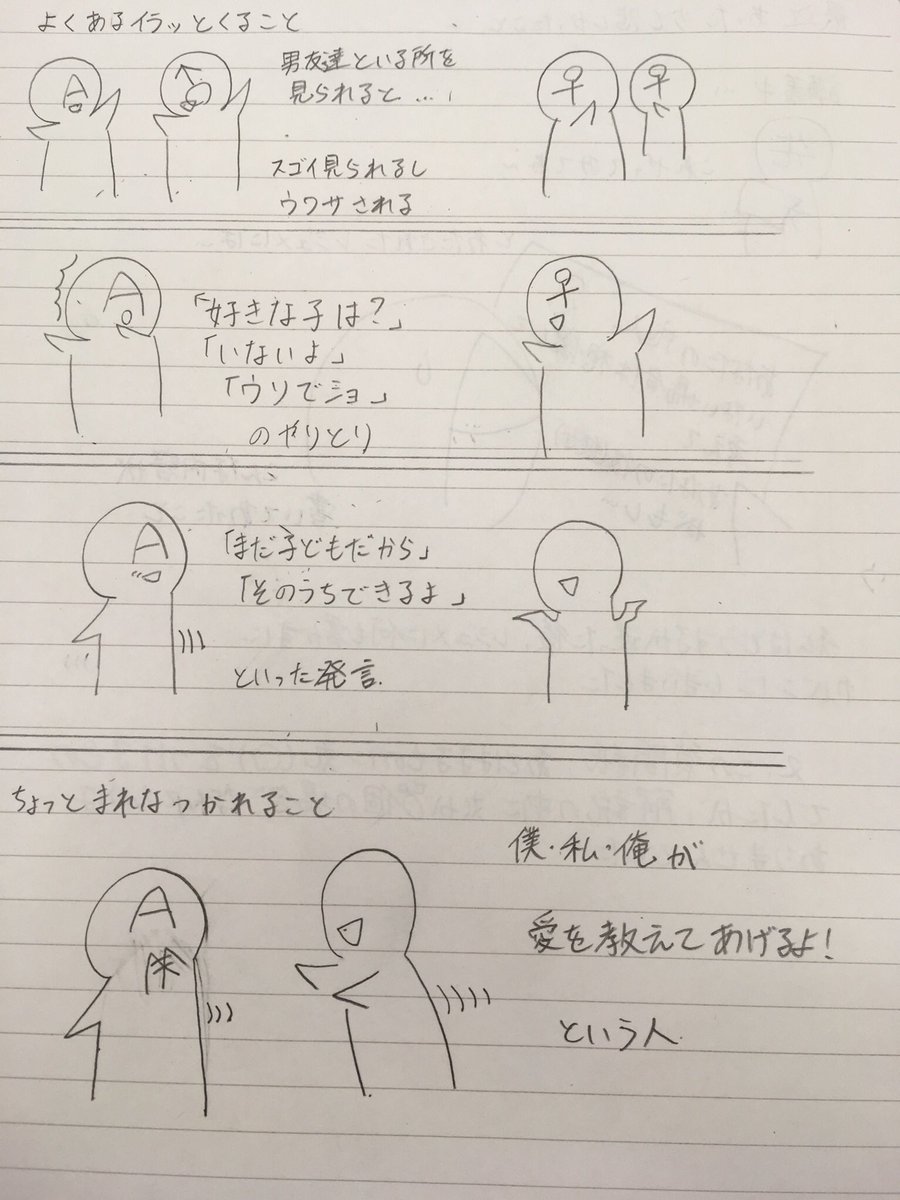 よくあるイラッとくること
A
男友達といる所を
見られると…
スゴイ見られるし
ウワサされる
A
「好きな子は?」
「いないよ」
「ウソでショ」
のやりとり
A
「まだ子どもだから」
「そのうちできるよ」
といった発言
ちょっとまれなつかれること
A
僕・私・俺が
愛を教えてあげるよ!
という人